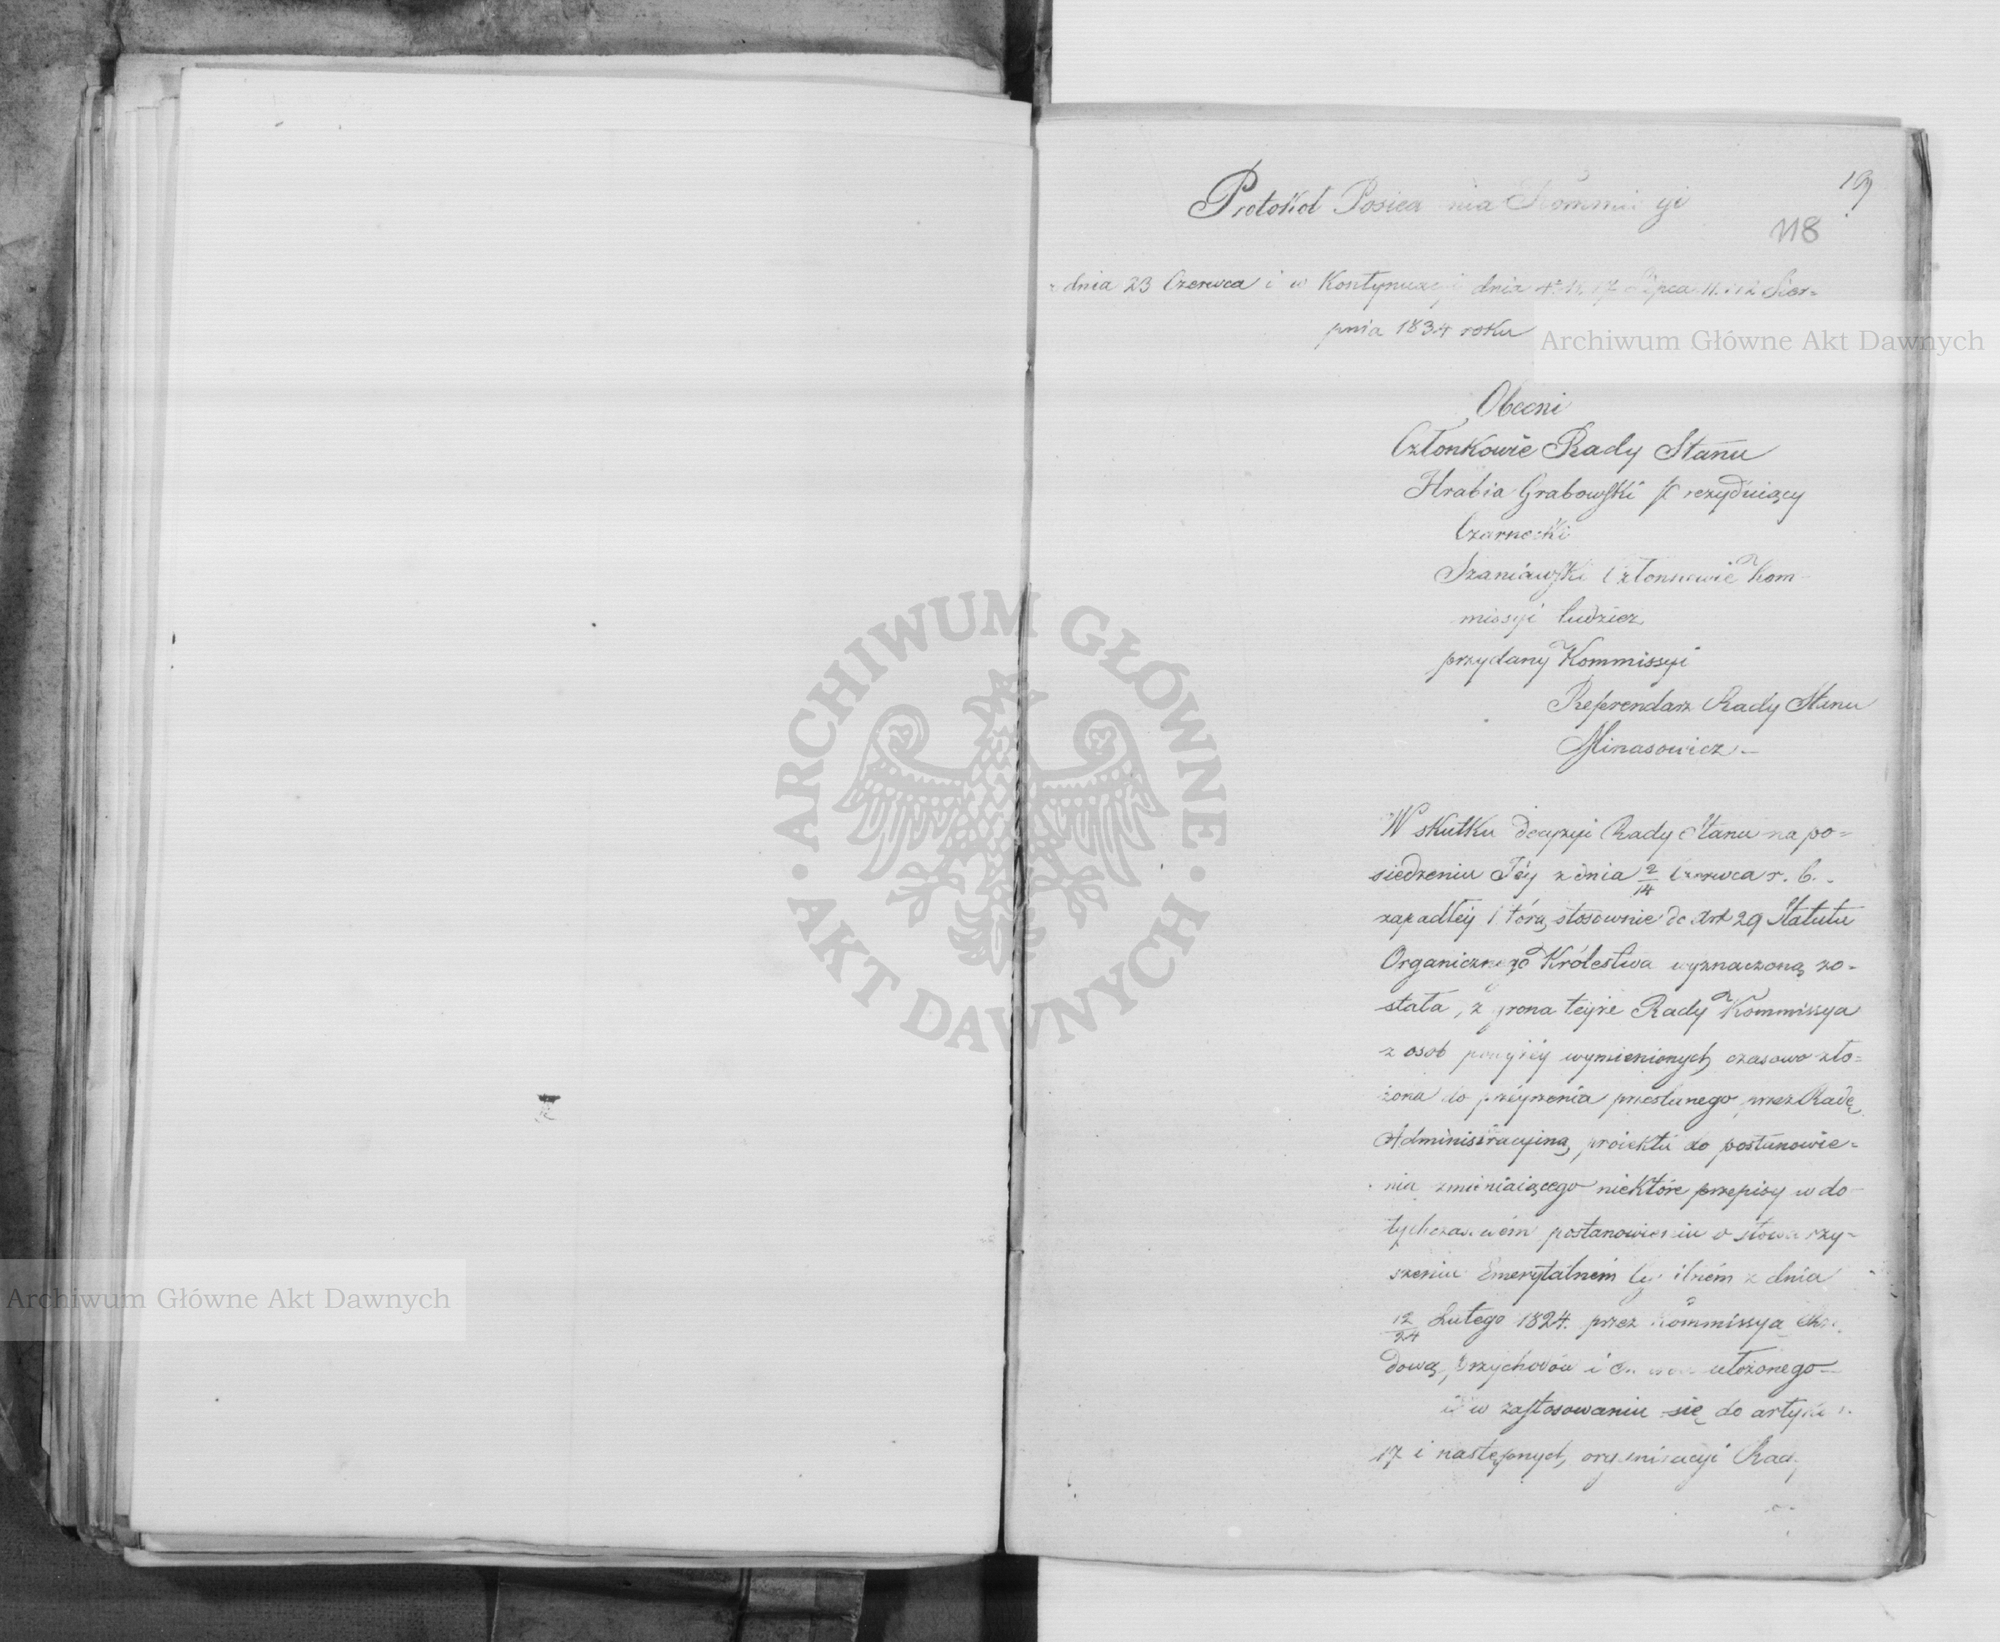 19
118
Protokół Posiedzenia Kommissyi
z dnia 23 Czerwca i w Kontynuacyi dnia 17 Lipca 11. i 12 Sier=
pnia 1834 roku
Archiwum Główne Akt Dawnych
Obecni
Członkowie Rady Stanu
Hrabia Grabowski Prezyduiący
Czarnecki
Szaniawski Członkowie Kom=
missyi tudzież
przydany Kommissyi
Referendarz Rady Stanu
Minasowicz.—
W skutku decyzyi Rady Stanu na po=
siedzeniu Jéy z dnia 2/14 Czerwca r. b.
zapadłéy którą stosownie do Art 29 Statutu
Organicznego Królestwa wyznaczoną zo=
stała, z grona teyże Rady Kommissya
z osób powyżéy wymienionych, czasowo zło=
żona do przeyrzenia przesłanego przez Radę
Administracyiną proiektu do postanowie=
nia zmieniaiącego niektóre przepisy w do
tychczasowém postanowieniu o stowarzy=
szeniu Emerytalném Cywilném z dnia
12/24 Lutego 1824. przez Kommissyą Rzą
dową Przychodów i Skarbu ułożonego—
i w zastosowaniu się do artyku
17 i następnych, organizacyi Rady
ARCHIWUM GŁÓWNE · AKT DAWNYCH ·
Archiwum Główne Akt Dawnych